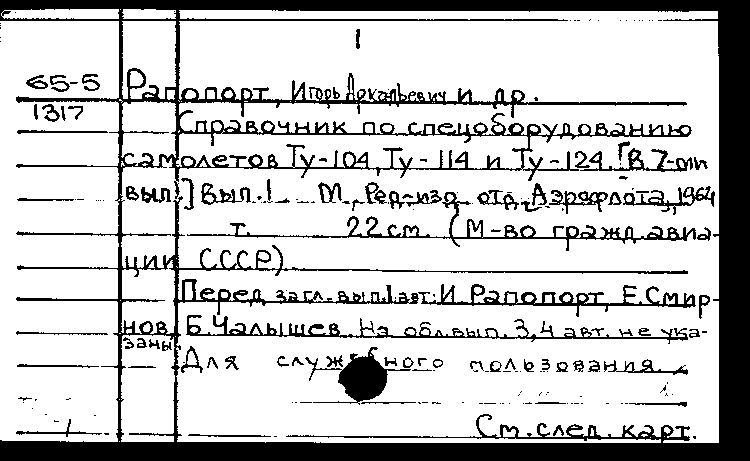 1
65-5 Рапопорт, Игорь Аркадьевич и др.
1317 Справочник по спецоборудованию
самолетов Ту-104, Ту-114 и Ту-124. [В 7-ми
вып.] Вып.1 М., Ред-изд. отд. Аэрофлота, 1964
т. 22 см. (М-во гражд.авиа-
ции СССР)
Перед загл.вып.1 авт: И. Рапопорт, Е.Смир-
нов, Б.Чалышев. На обл.вып. 3,4 авт. не ука-
заны.
Для служебного пользования.
См.след.карт.